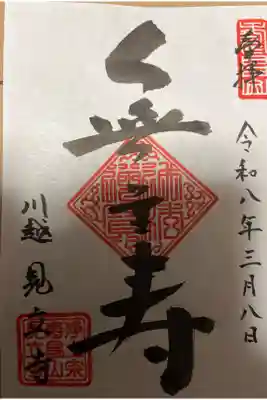 奉拝
令和八年三月八日
無量寿
川越 見立寺